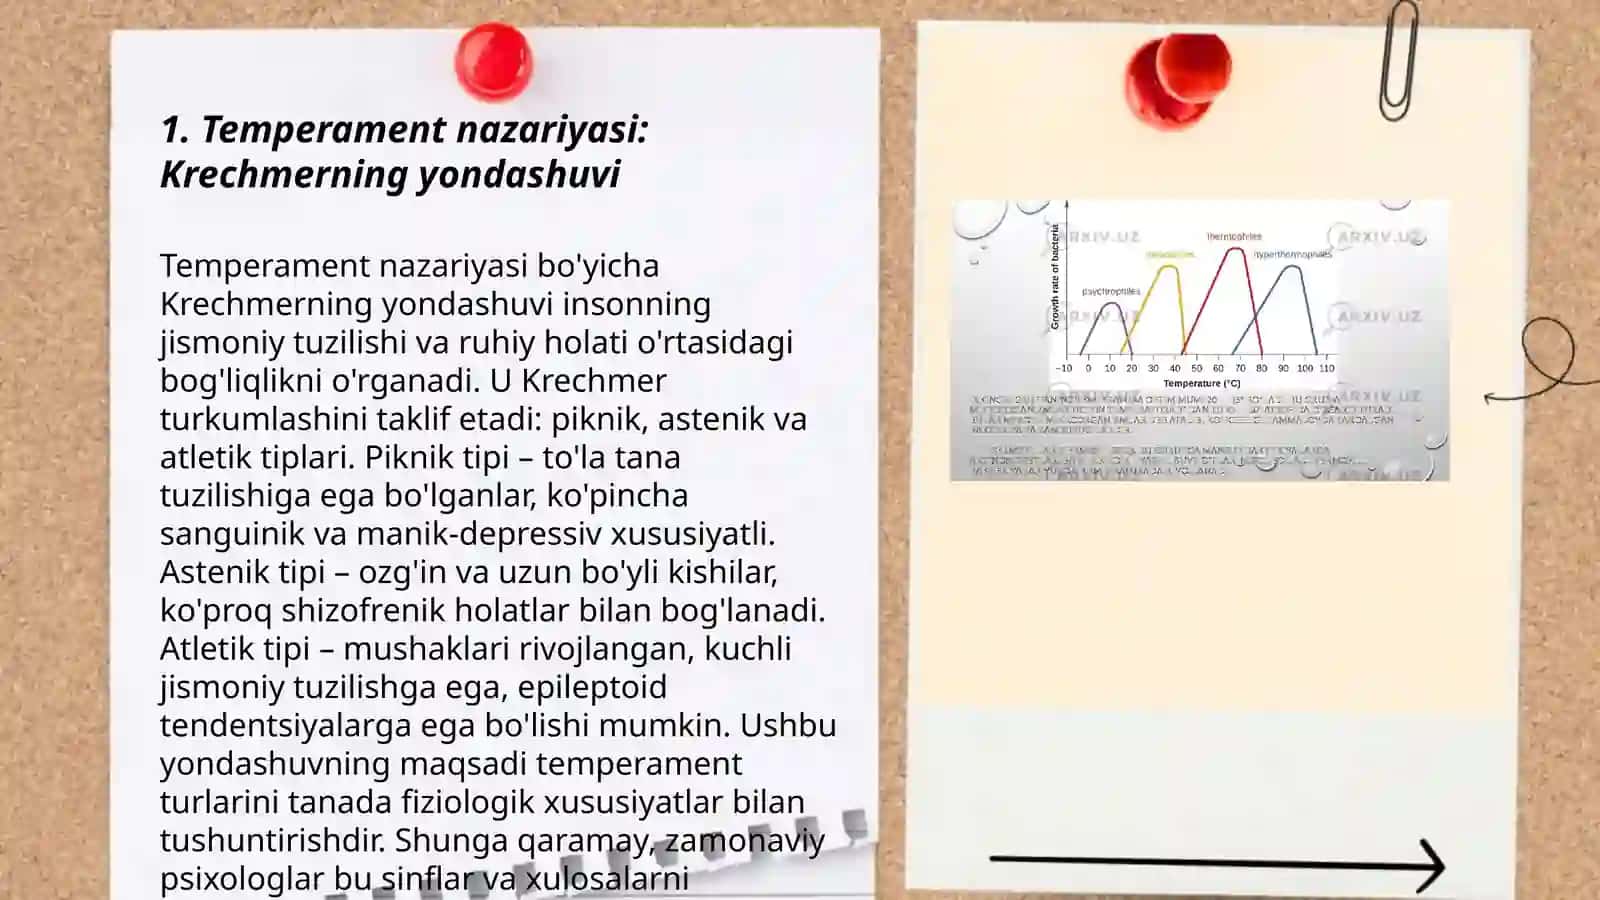 1. Temperament nazariyasi:
Krechmerning yondashuvi
Temperament nazariyasi bo'yicha
Krechmerning yondashuvi insonning
jismoniy tuzilishi va ruhiy holati o'rtasidagi
bog'liqlikni o'rganadi. U Krechmer
turkumlashini taklif etadi: piknik, astenik va
atletik tiplari. Piknik tipi – to'la tana
tuzilishiga ega bo'lganlar, ko'pincha
sanguinik va manik-depressiv xususiyatli.
Astenik tipi – ozg'in va uzun bo'yli kishilar,
ko'proq shizofrenik holatlar bilan bog'lanadi.
Atletik tipi – mushaklari rivojlangan, kuchli
jismoniy tuzilishga ega, epileptoid
tendentsiyalarga ega bo'lishi mumkin. Ushbu
yondashuvning maqsadi temperament
turlarini tanada fiziologik xususiyatlar bilan
tushuntirishdir. Shunga qaramay, zamonaviy
psixologlar bu sinflar va xulosalarni
ARXIV.UZ ARXIV.UZ
thermophiles
hyperthermophiles
psychrophiles
Growth rate of bacteria
ARXIV.UZ ARXIV.UZ
–10 0 10 20 30 40 50 60 70 80 90 100 110
Temperature (°C)
ARXIV.UZ ARXIV.UZ